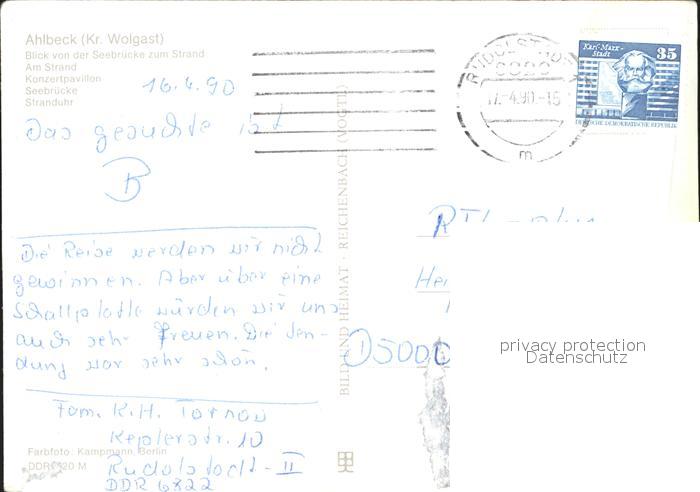 Ahlbeck (Kr. Wolgast)
Blick von der Seebrücke zum Strand
Am Strand
Konzertpavillon
Seebrücke
Stranduhr
16.4.90
Das gesuchte ist
B
Die Reise werden wir nicht
gewinnen. Aber über eine
Schallplatte würden wir uns
auch sehr freuen. Die Sen-
dung war sehr schön.
Fam. K.H. Tornow
Keplerstr. 10
Rudolstadt - II
DDR 6822
Farbfoto: Kampmann, Berlin
DDR 120 M
BILD UND HEIMAT · REICHENBACH (VOGTL)
RUDOLSTADT
17.-4.90.-15
m
Karl-Marx-
Stadt
35
DEUTSCHE DEMOKRATISCHE REPUBLIK
RTL - plus
D5000
privacy protection
Datenschutz